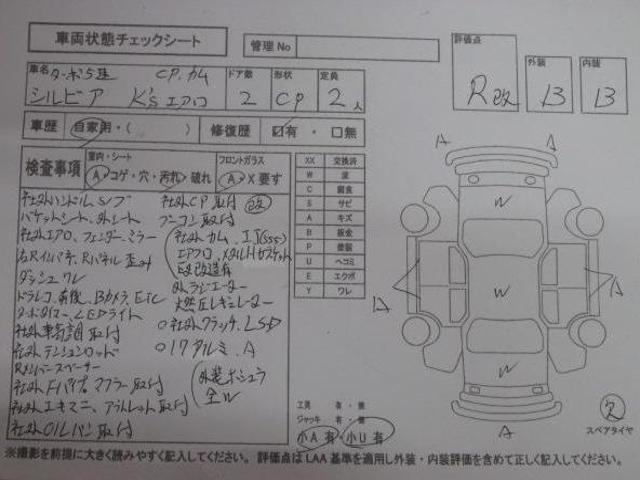 車両状態チェックシート
管理No
評価点 R改
外装 B
内装 B
車名 ターボ5速 CP.カム
シルビア K'sエアロ
ドア数 2
形状 CP
定員 2人
車歴 自家用・( )
修復歴 ☑有・□無
検査事項
室内・シート
A コゲ・穴・汚れ・破れ
フロントガラス
A X要す
XX 交換済
W 波
C 腐食
S サビ
A キズ
B 板金
P 塗装
U ヘコミ
E エクボ
Y ワレ
社外ハンドル、Sノブ
バケットシート、外シート
社外エアロ、フェンダー、ミラー
右Rインパネ、Rパネル歪み
ダッシュワレ
ドラレコ前後、Bカメラ、ETC
ターボタイマー、LEDライト
社外車高調取付
社外テンションロッド
Rメンバースペーサー
社外Fパイプ、マフラー取付
社外エキマニ、アウトレット取付
社外OILパン取付
社外CP取付 改
ブーコン取付
社外カム、IJ(555)
エアフロ、メタルHガスケット
改改造有
外ラジエーター
燃圧レギュレーター
○社外クラッチ、LSD
○17アルミ.A
外装ボシュラ
全W
A
A
W
W
W
A
A
A
工具 有・無
ジャッキ 有・無
小A有
小U有
欠
スペアタイヤ
※撮影を前提に大きく読みやすく記入してください。評価点はLAA基準を適用し外装・内装評価を含めて正しく記入してください。